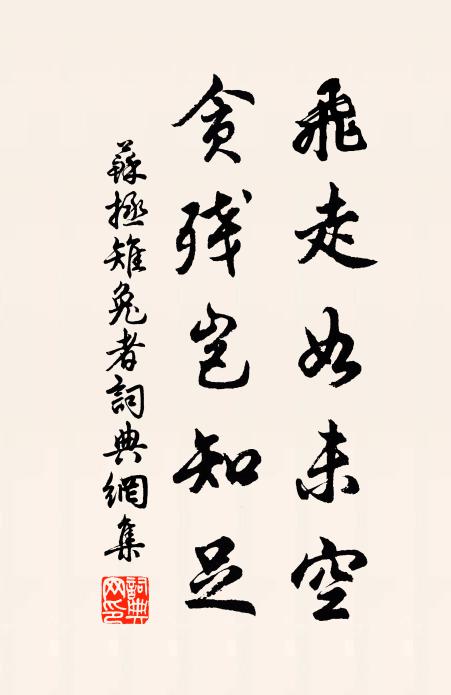 飛走如未空
貪残岂知足
蘇拯雉兔者詞典網集
詞典
网印